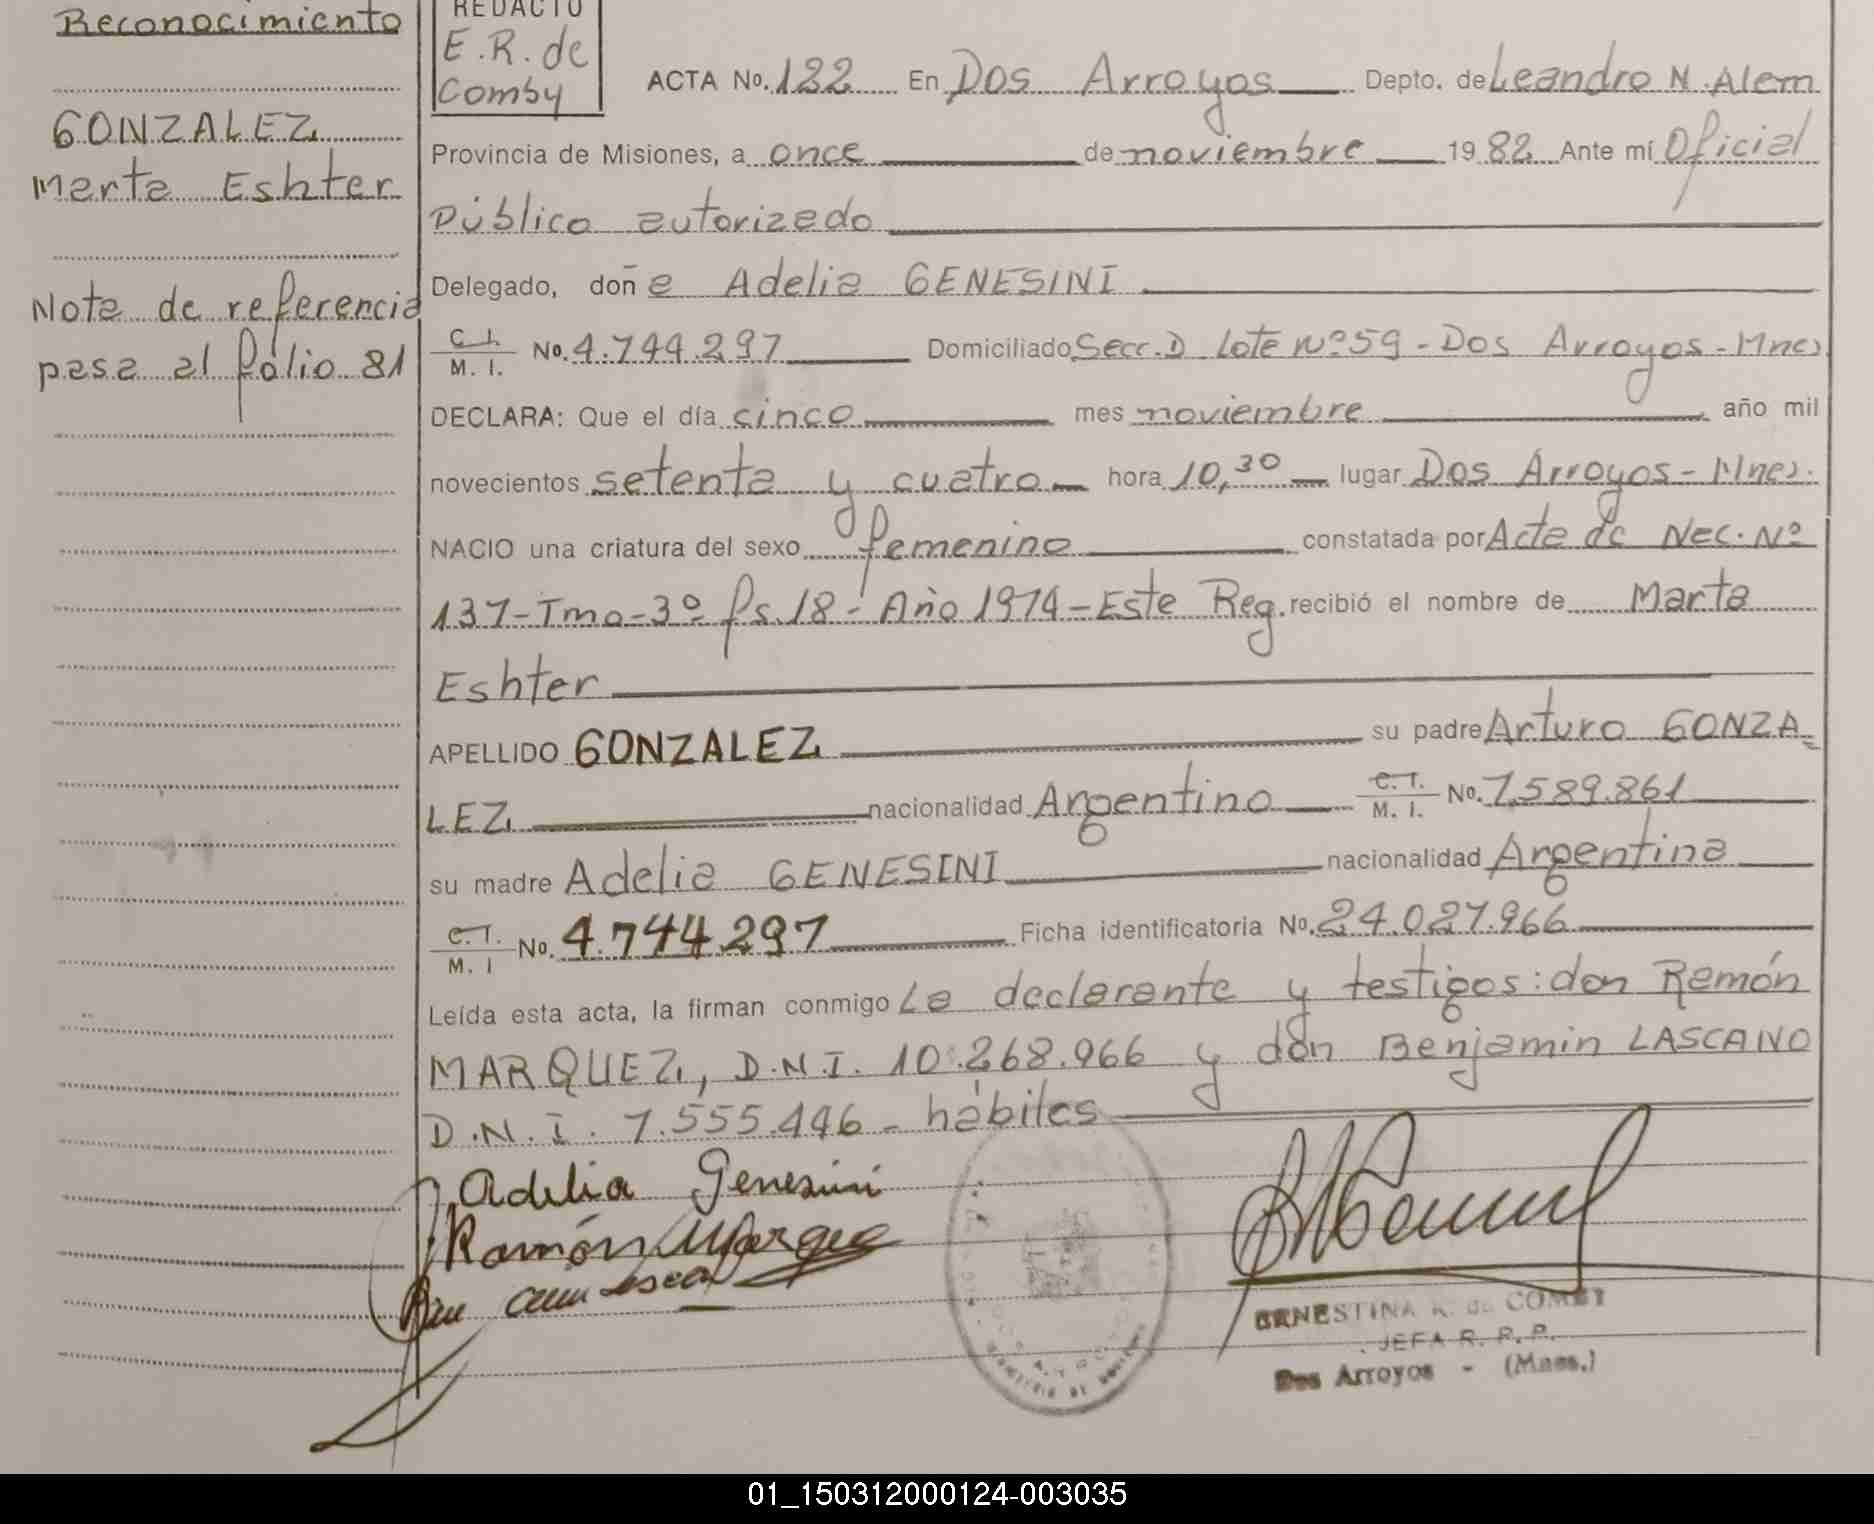 Reconocimiento
GONZALEZ
Marta Eshter
Nota de referencia
pasa al folio 81
REDACTO
E.R. de
Comby
ACTA No. 122 En Dos Arroyos Depto. de Leandro N. Alem
Provincia de Misiones, a once de noviembre 1982 Ante mí Oficial
Público autorizado
Delegado, doña Adelia GENESINI
C. I. / M. I. No. 4.744.297 Domiciliado Secc. D Lote Nº 59 - Dos Arroyos - Mnes
DECLARA: Que el día cinco mes noviembre año mil
novecientos setenta y cuatro hora 10,30 lugar Dos Arroyos - Mnes.
NACIO una criatura del sexo femenino constatada por Acta de Nac. Nº
137-Tmo-3º fs.18-Año 1974-Este Reg. recibió el nombre de Marta
Eshter
APELLIDO GONZALEZ su padre Arturo GONZA=
LEZ nacionalidad Argentino C. I. / M. I. No. 7.589.861
su madre Adelia GENESINI nacionalidad Argentina
C. I. / M. I No. 4.744.297 Ficha identificatoria No. 24.027.966
Leída esta acta, la firman conmigo La declarante y testigos: don Ramón
MARQUEZ, D.N.I. 10.268.966 y don Benjamin LASCANO
D.N.I. 7.555.446 - hábiles
Adelia Genesini
Ramón Marque
ERNESTINA R. de COMBY
JEFA R. P. P.
Dos Arroyos - (Mnes.)
01_150312000124-003035